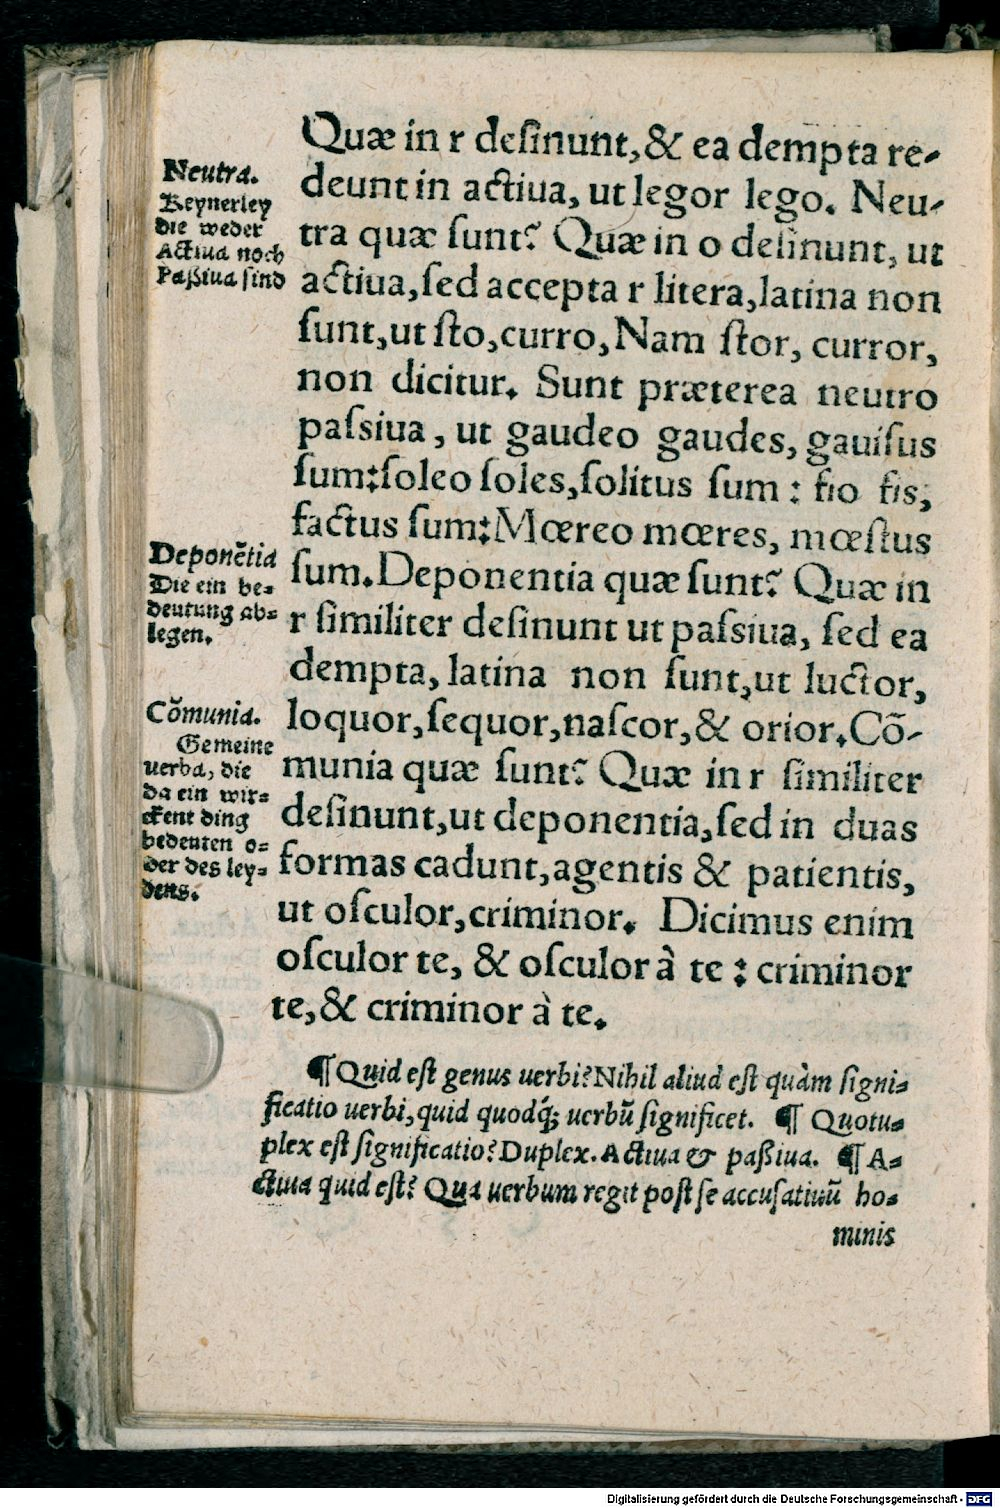 Quæ in r desinunt, & ea dempta re-
deunt in actiua, ut legor lego. Neu-
tra quæ sunt? Quæ in o desinunt, ut
actiua, sed accepta r litera, latina non
sunt, ut sto, curro, Nam stor, curror,
non dicitur. Sunt præterea neutro
passiua, ut gaudeo gaudes, gauisus
sum: soleo soles, solitus sum: fio fis,
factus sum: Mœreo mœres, mœstus
sum. Deponentia quæ sunt? Quæ in
r similiter desinunt ut passiua, sed ea
dempta, latina non sunt, ut luctor,
loquor, sequor, nascor, & orior. Cõ-
munia quæ sunt? Quæ in r similiter
desinunt, ut deponentia, sed in duas
formas cadunt, agentis & patientis,
ut osculor, criminor. Dicimus enim
osculor te, & osculor à te: criminor
te, & criminor à te.
Neutra.
Keynerley
die weder
Actiua noch
Paßiua sind
Deponẽtia
Die ein be-
deutung ab-
legen.
Cõmunia.
Gemeine
uerba, die
da ein wir-
ckent ding
bedeuten o-
der des ley-
dens.
¶ Quid est genus uerbi? Nihil aliud est quàm signi-
ficatio uerbi, quid quodq́; uerbũ significet. ¶ Quotu-
plex est significatio? Duplex. Actiua & paßiua. ¶ A-
ctiua quid est? Qua uerbum regit post se accusatiuũ ho-
minis
Digitalisierung gefördert durch die Deutsche Forschungsgemeinschaft - DFG